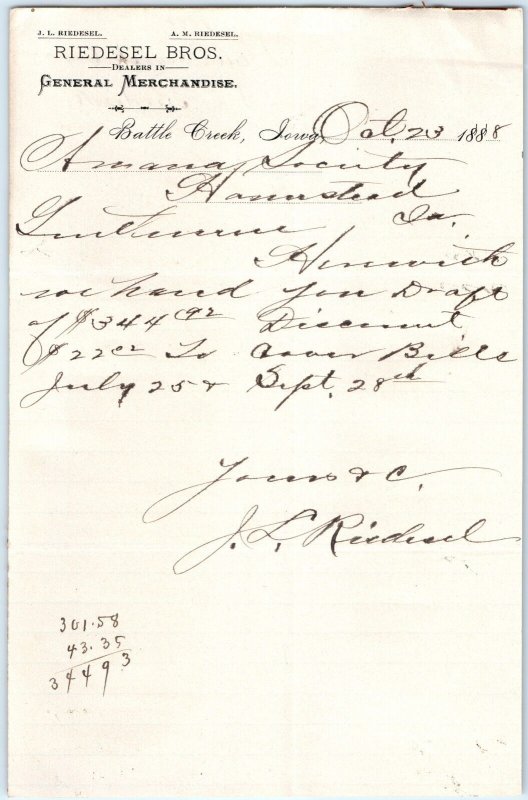 J. L. RIEDESEL. A. M. RIEDESEL.
RIEDESEL BROS.
DEALERS IN
GENERAL MERCHANDISE.
Battle Creek, Iowa, Oct. 23 1888
Amana Society
Homestead
Ia.
Gentlemen
Herewith
we hand you Draft
of $344 92 Discount
$22 02 to cover Bills
July 25 & Sept. 28th
Yours & C.
J. L. Riedesel
301.58
43.35
344 93